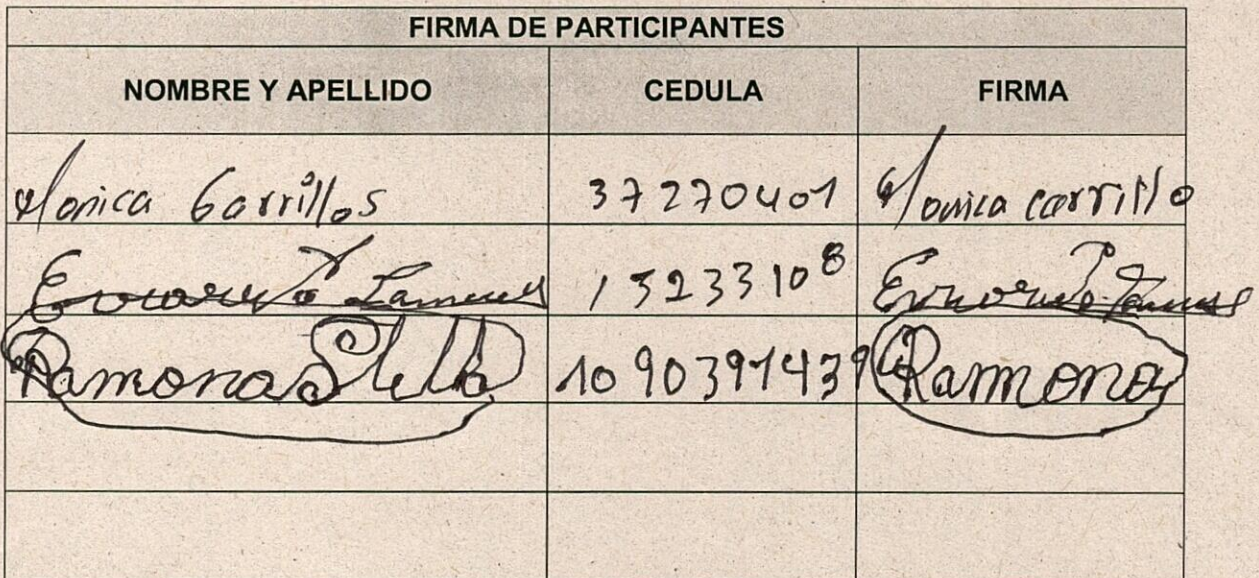 FIRMA DE PARTICIPANTES
NOMBRE Y APELLIDO CEDULA FIRMA
Monica Carrillos 37270401 Monica carrillo
13233108
Ramona Stella 1090397439 Ramona